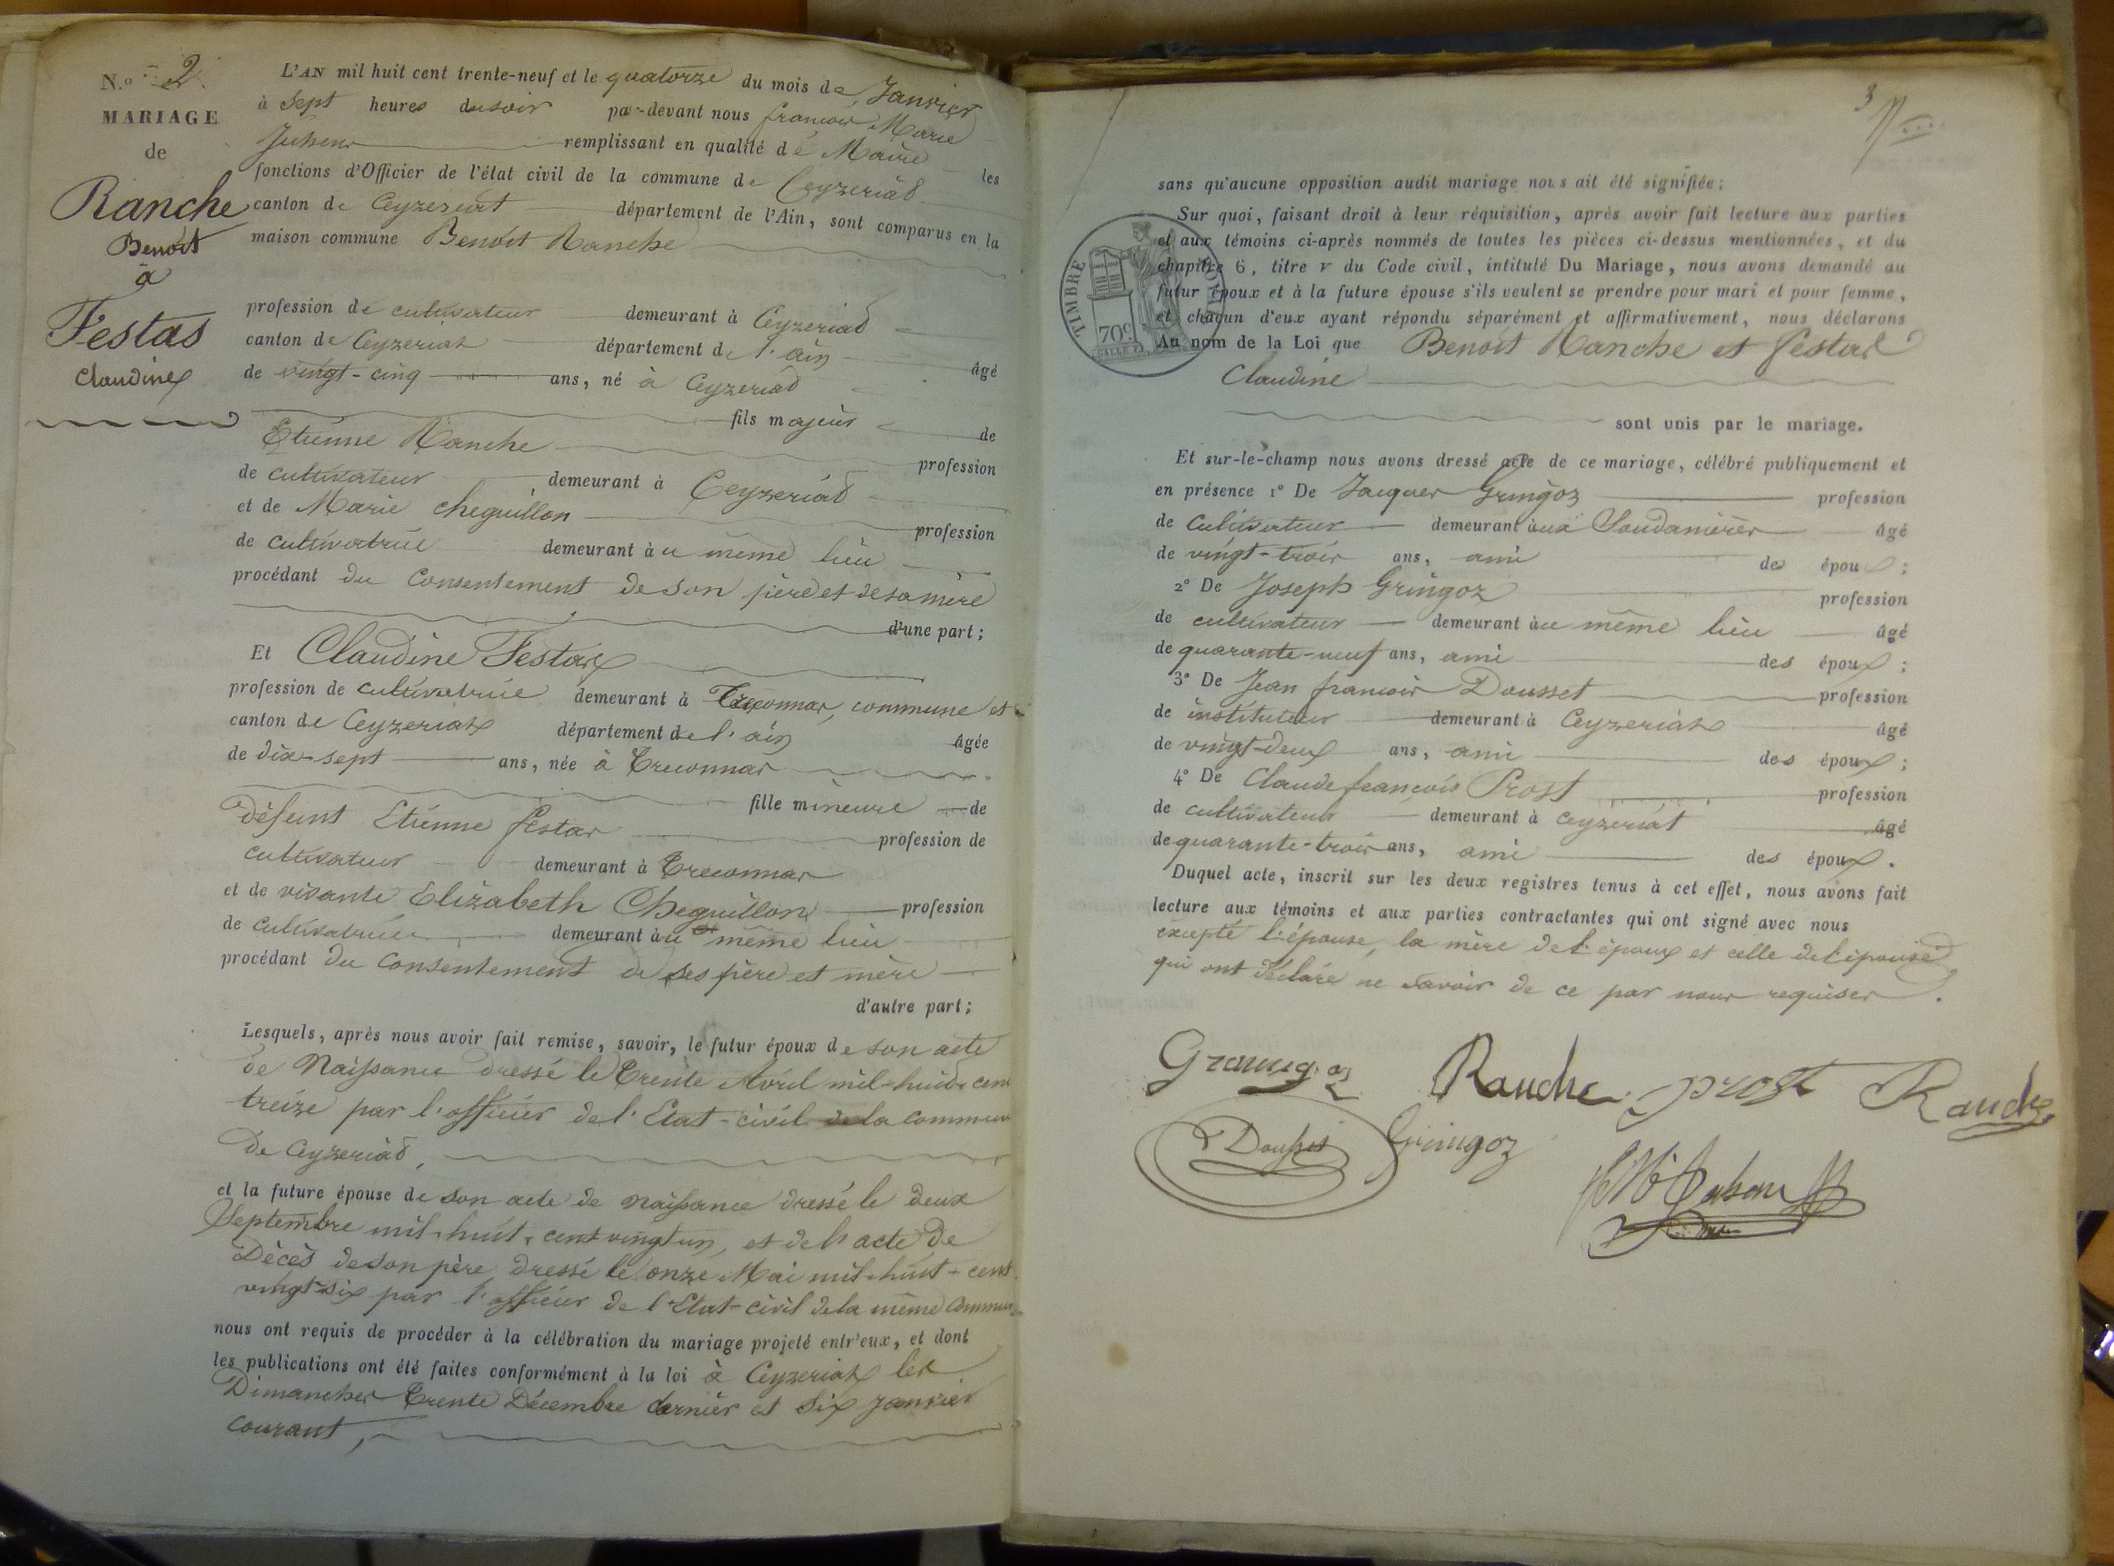 N.o 2.
MARIAGE
de
Ranche
Benoit
à
Festas
Claudine
L'AN mil huit cent trente-neuf et le quatorze du mois de Janvier
à sept heures du soir par-devant nous francois Marie
remplissant en qualité de Maire les
fonctions d'Officier de l'état civil de la commune de Ceyzeriat
canton de Ceyzeriat département de l'Ain, sont comparus en la
maison commune Benoit Ranche
profession de cultivateur demeurant à Ceyzeriat
canton de Ceyzeriat département de l'ain âgé
de vingt-cinq ans, né à Ceyzeriat
fils majeur de
Etienne Ranche profession
de cultivateur demeurant à Ceyzeriat
et de Marie Cheguillon profession
de cultivatrice demeurant au même lieu
procédant du consentement de son père et de sa mère
d'une part;
Et Claudine Festas
profession de cultivatrice demeurant à Treconnas, commune et
canton de Ceyzeriat département de l'ain âgée
de dix-sept ans, née à Treconnas
fille mineure de
défunt Etienne festas profession de
cultivateur demeurant à Treconnas
et de vivante Elizabeth Cheguillon profession
de cultivatrice demeurant au même lieu
procédant du consentement de ses père et mère
d'autre part;
Lesquels, après nous avoir fait remise, savoir, le futur époux de son acte
de Naissance dressé le trente Avril mil-huit cent
treize par l'officier de l'Etat-civil de la commune
de Ceyzeriat,
et la future épouse de son acte de naissance dressé le deux
Septembre mil-huit-cent vingt un, et de l'acte de
Décès de son père dressé le onze Mai mil-huit-cent
vingt-six par l'officier de l'Etat-civil de la même commune
nous ont requis de procéder à la célébration du mariage projeté entr'eux, et dont
les publications ont été faites conformément à la loi à Ceyzeriat les
Dimanches trente Décembre dernier et six janvier
courant,
3
sans qu'aucune opposition audit mariage nous ait été signifiée;
Sur quoi, faisant droit à leur réquisition, après avoir fait lecture aux parties
et aux témoins ci-après nommés de toutes les pièces ci-dessus mentionnées, et du
chapitre 6, titre v du Code civil, intitulé Du Mariage, nous avons demandé au
futur époux et à la future épouse s'ils veulent se prendre pour mari et pour femme,
et chacun d'eux ayant répondu séparément et affirmativement, nous déclarons
Au nom de la Loi que Benoit Ranche et festas
Claudine
TIMBRE ROYAL
70c.
sont unis par le mariage.
Et sur-le-champ nous avons dressé acte de ce mariage, célébré publiquement et
en présence 1º De Jacques Gringoz profession
de Cultivateur demeurant aux Soudanières âgé
de vingt-trois ans, ami des époux;
2º De Joseph Gringoz profession
de cultivateur demeurant au même lieu âgé
de quarante-neuf ans, ami des époux;
3º De Jean francois Dousset profession
de instituteur demeurant à Ceyzeriat âgé
de vingt-deux ans, ami des époux;
4º De Claude françois Prost profession
de cultivateur demeurant à Ceyzériat âgé
de quarante-trois ans, ami des époux.
Duquel acte, inscrit sur les deux registres tenus à cet effet, nous avons fait
lecture aux témoins et aux parties contractantes qui ont signé avec nous
excepté l'épouse, la mère de l'époux et celle de l'épouse
qui ont déclaré ne savoir de ce par nous requises.
Ranche prost Ranche
Dousset Gringoz